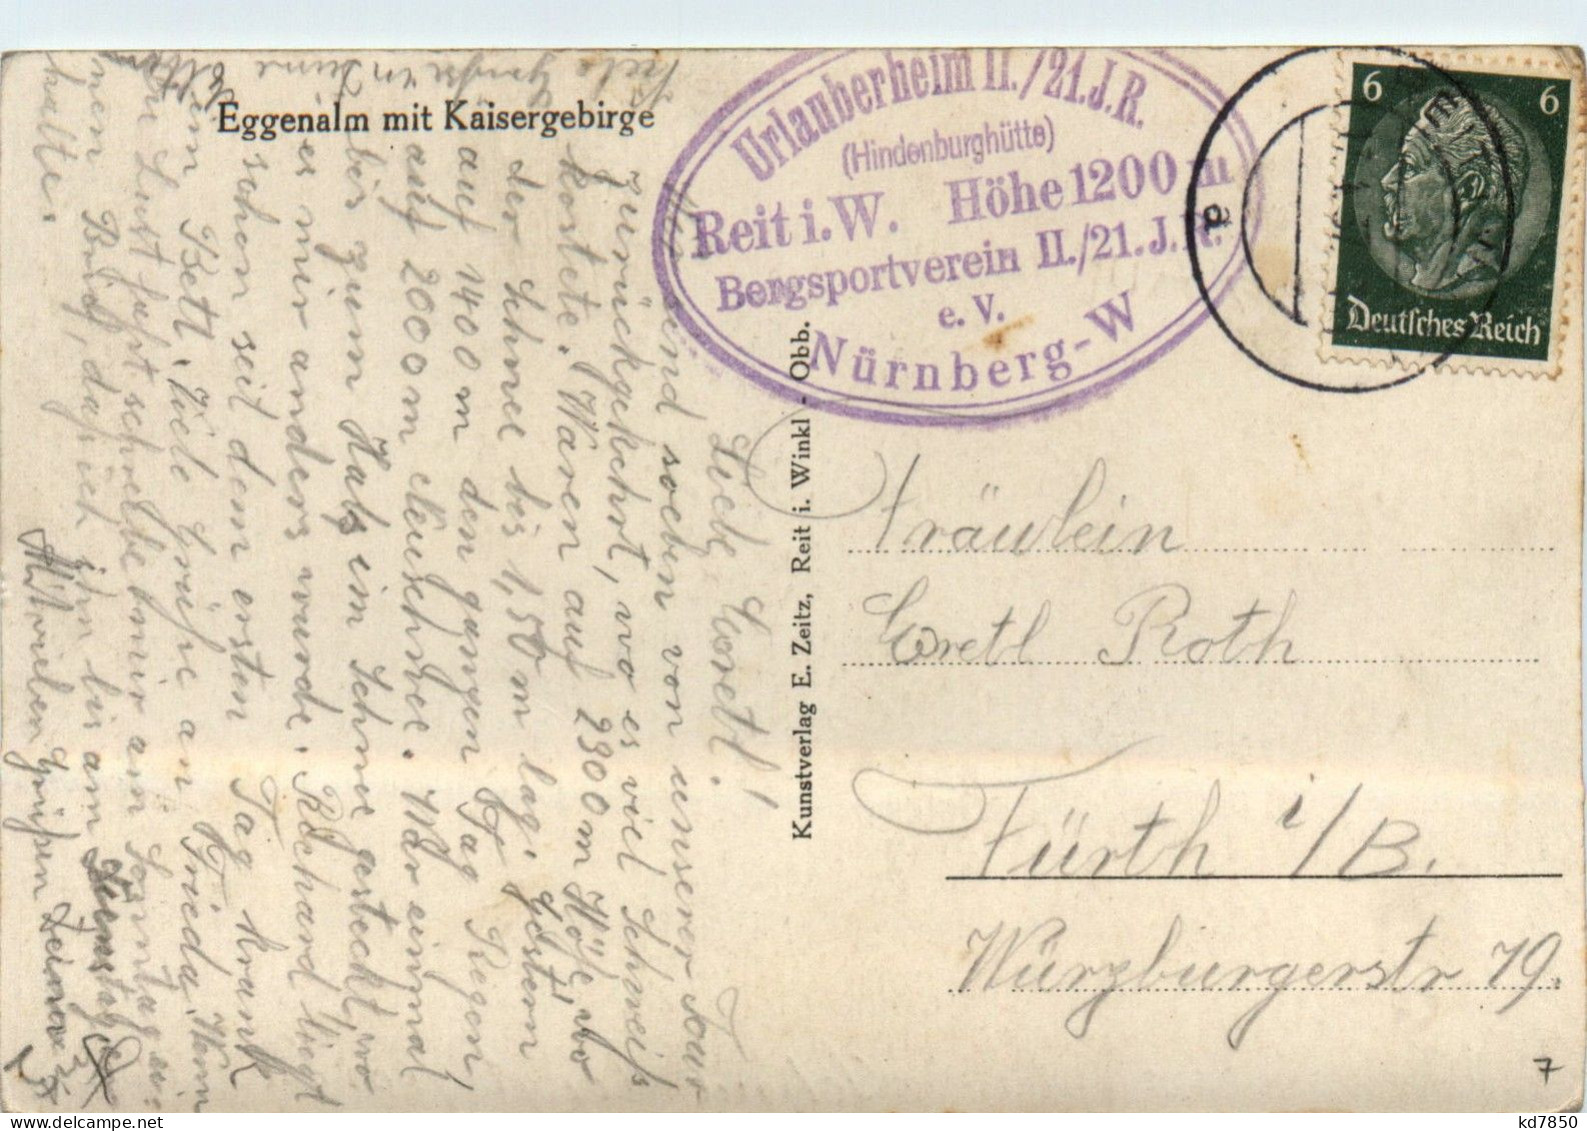 Eggenalm mit Kaisergebirge
Urlauberheim II./21.J.R.
(Hindenburghütte)
Reit i.W. Höhe 1200 m
Bergsportverein II./21.J.R.
e.V.
Nürnberg-W
6 6
Deutsches Reich
Kunstverlag E. Zeitz, Reit i. Winkl - Obb.
Liebe Gretl!
Wir sind soeben von unserer Tour
zurückgekehrt, wo es viel Schweiß
kostete. Waren auf 2300 m Höhe, wo
der Schnee bis 1,50 m lag. Gestern
auf 1400 m den ganzen Tag Regen,
auf 2000 m Neuschnee. War einmal
bis zum Hals im Schnee gesteckt, wo
es mir anders wurde. Richard liegt
schon seit dem ersten Tag krank
im Bett. Viele Grüße an Frieda. Wenn
Du Lust hast schreibe mir am Sonntag ei-
nen Brief, daß ich ihn bis am Dienstag er-
halte.
Mit vielen Grüßen Dein
Viele Grüße
Fräulein
Gretl Roth
Fürth i/B.
Würzburgerstr 79.
7
kd7850